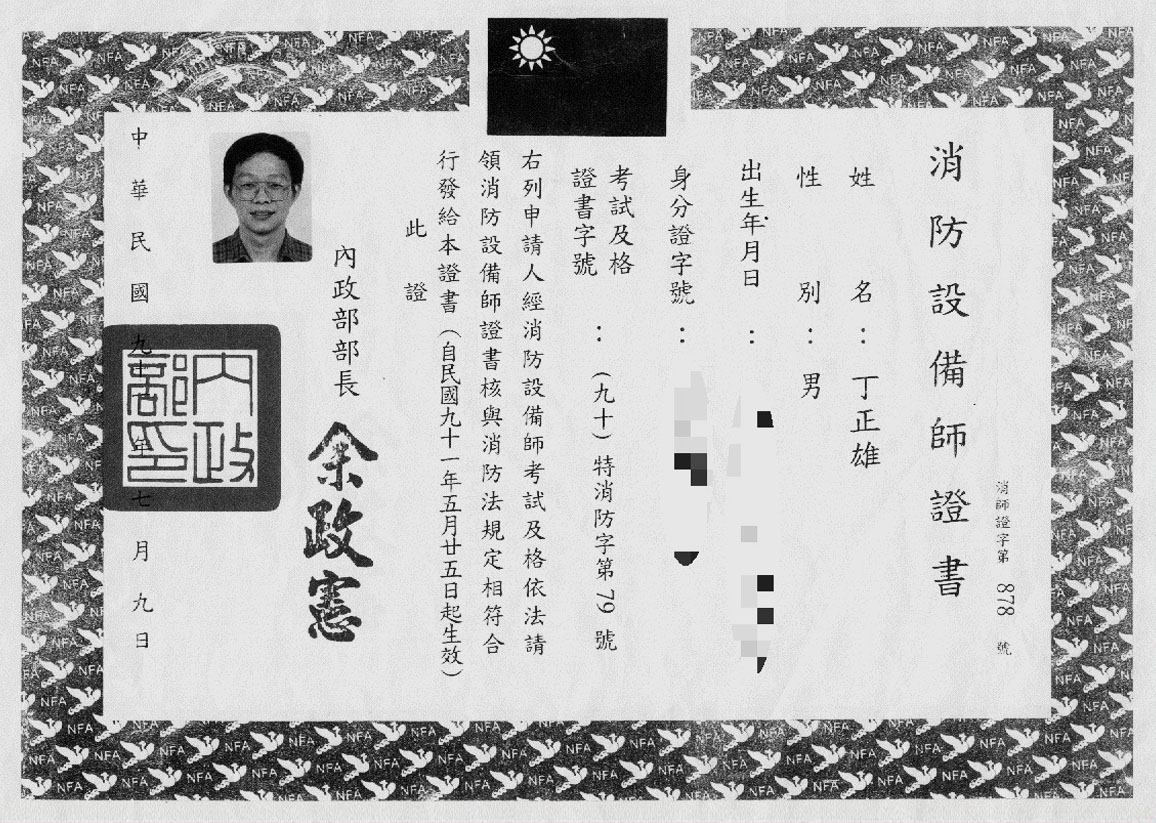 消防設備師證書
消師證字第 878 號
姓名：丁正雄
性別：男
出生年月日：
身分證字號：
考試及格
證書字號：(九十)特消防字第79號
右列申請人經消防設備師考試及格依法請
領消防設備師證書核與消防法規定相符合
行發給本證書(自民國九十一年五月廿五日起生效)
此證
內政部部長 余政憲
內政部印
中華民國九十一年七月九日
NFA